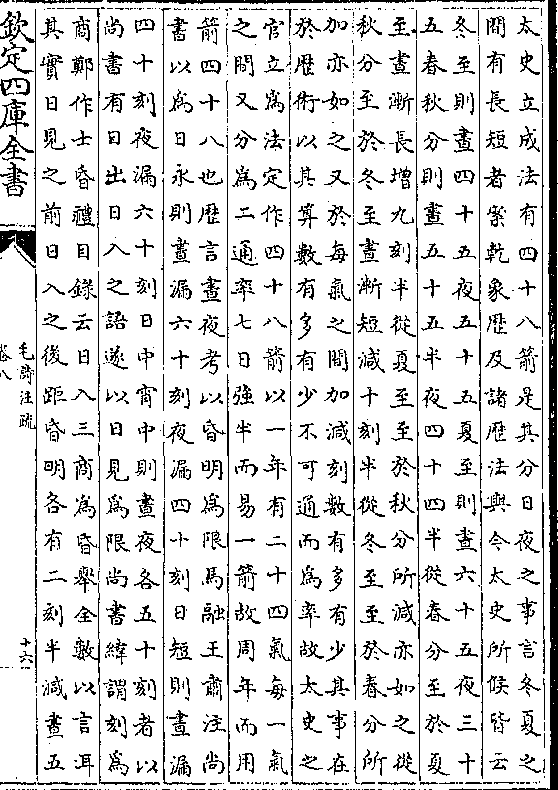 太史立成法有四十八箭是其分日夜之事言冬夏之
間有長短者案乾象歴及諸歴法與今太史所候皆云
冬至則晝四十五夜五十五夏至則晝六十五夜三十
五春秋分則晝五十五半夜四十四半從春分至於夏
至晝漸長増九刻半從夏至至於秋分所減亦如之從
秋分至於冬至晝漸短減十刻半從冬至至於春分所
加亦如之又於每氣之間加減刻數有多有少其事在
於歴術以其算數有多有少不可通而為率故太史之
官立為法定作四十八箭以一年有二十四氣每一氣
之間又分為二通率七日強半而易一箭故周年而用
箭四十八也歴言晝夜考以昏明為限馬融王肅注尚
書以為日永則晝漏六十刻夜漏四十刻日短則晝漏
四十刻夜漏六十刻日中宵中則晝夜各五十刻者以
尚書有日出日入之語遂以日見為限尚書緯謂刻為
商鄭作士昏禮目錄云日入三商為昏舉全數以言耳
其實日見之前日入之後距昏明各有二刻半減晝五
欽定四庫全書
毛詩注疏
卷八
十六